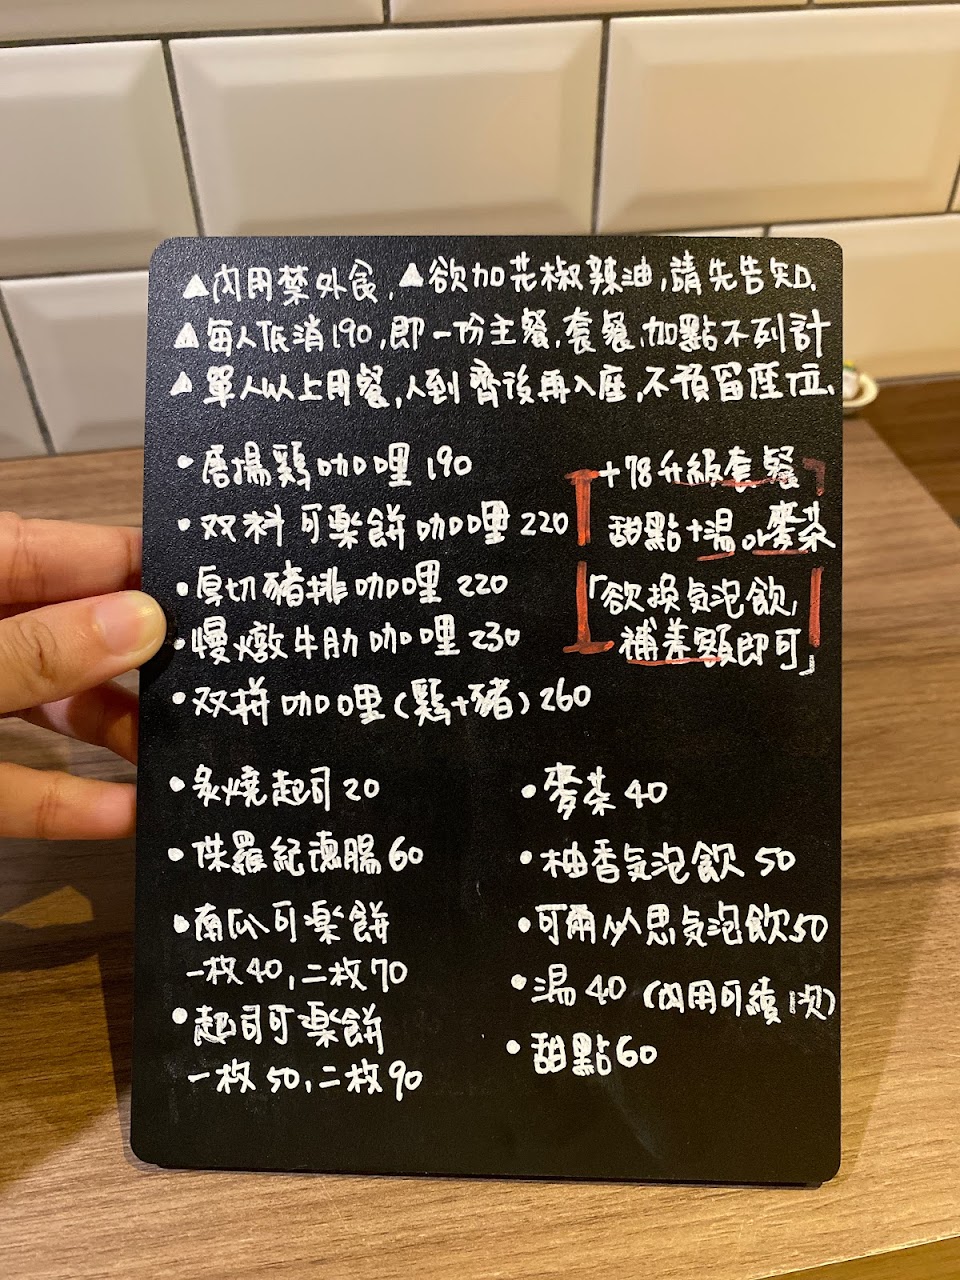 ▲內用禁外食,▲欲加花椒辣油,請先告知.
▲每人低消190,即一份主餐,套餐,加點不列計
▲單人以上用餐,人到齊後再入座,不預留座位.
•唐揚鶏咖哩 190
•双料可樂餅咖哩 220
•厚切豬排咖哩 220
•慢燉牛肋咖哩 230
•双拼咖哩(鶏+豬) 260
+78升級套餐
甜點+湯or麥茶
「欲換気泡飲,
補差額即可」
•炙燒起司 20
•侏羅紀德腸 60
•南瓜可樂餅
一枚40,二枚70
•起司可樂餅
一枚50,二枚90
•麥茶 40
•柚香気泡飲 50
•可爾必思気泡飲50
•湯 40 (內用可續1次)
•甜點60